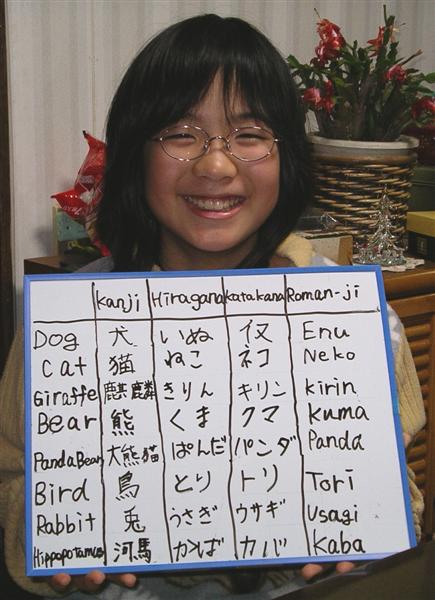 Kanji Hiragana Katakana Roman-ji
Dog 犬 いぬ イヌ Enu
Cat 猫 ねこ ネコ Neko
Giraffe 麒麟 きりん キリン kirin
Bear 熊 くま クマ Kuma
PandaBear 大熊猫 ぱんだ パンダ Panda
Bird 鳥 とり トリ Tori
Rabbit 兎 うさぎ ウサギ Usagi
Hippopotamus 河馬 かば カバ Kaba